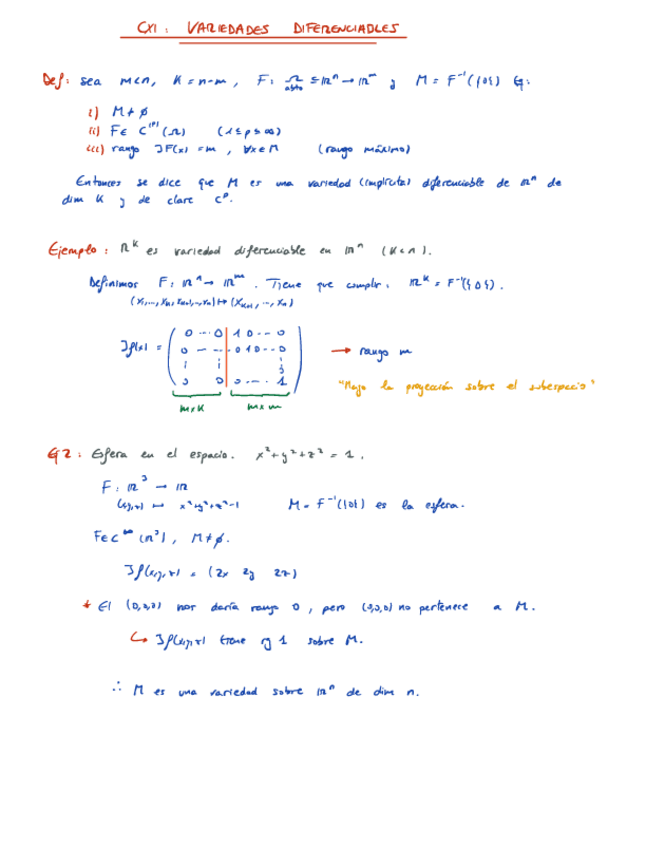 CXI: VARIEDADES DIFERENCIABLES
Def: sea m<n, k = n-m, F: Ω ⊆ ℝⁿ → ℝᵐ y M = F⁻¹({0}) tq:
abto
i) M ≠ ∅
ii) F ∈ C⁽ᵖ⁾(Ω) (1 ≤ p ≤ ∞)
iii) rango JF(x) = m, ∀x∈M (rango máximo)
Entonces se dice que M es una variedad (implícita) diferenciable de ℝⁿ de
dim k y de clase Cᵖ.
Ejemplo: ℝᵏ es variedad diferenciable en ℝⁿ (k<n).
Definimos F: ℝⁿ → ℝᵐ. Tiene que cumplir: ℝᵏ = F⁻¹({0}).
(x₁,...,xₖ,xₖ₊₁,...,xₙ) ↦ (xₖ₊₁,...,xₙ)
Jf(x) = ( 0 ... 0 | 1 0 ... 0
0 ... 0 1 0 ... 0 → rango m
⋮ ⋮ ⋮
0 0 0 ... 1 ) "Hago la proyección sobre el subespacio"
m×k m×m
Ej 2: Esfera en el espacio. x²+y²+z² = 1.
F: ℝ³ → ℝ
(x,y,z) ↦ x²+y²+z²-1 M = F⁻¹({0}) es la esfera.
F ∈ C^∞(ℝ³), M ≠ ∅.
Jf(x,y,z) = (2x 2y 2z)
* El (0,0,0) nos daría rango 0, pero (0,0,0) no pertenece a M.
↳ Jf(x,y,z) tiene rg 1 sobre M.
∴ M es una variedad sobre ℝⁿ de dim n.